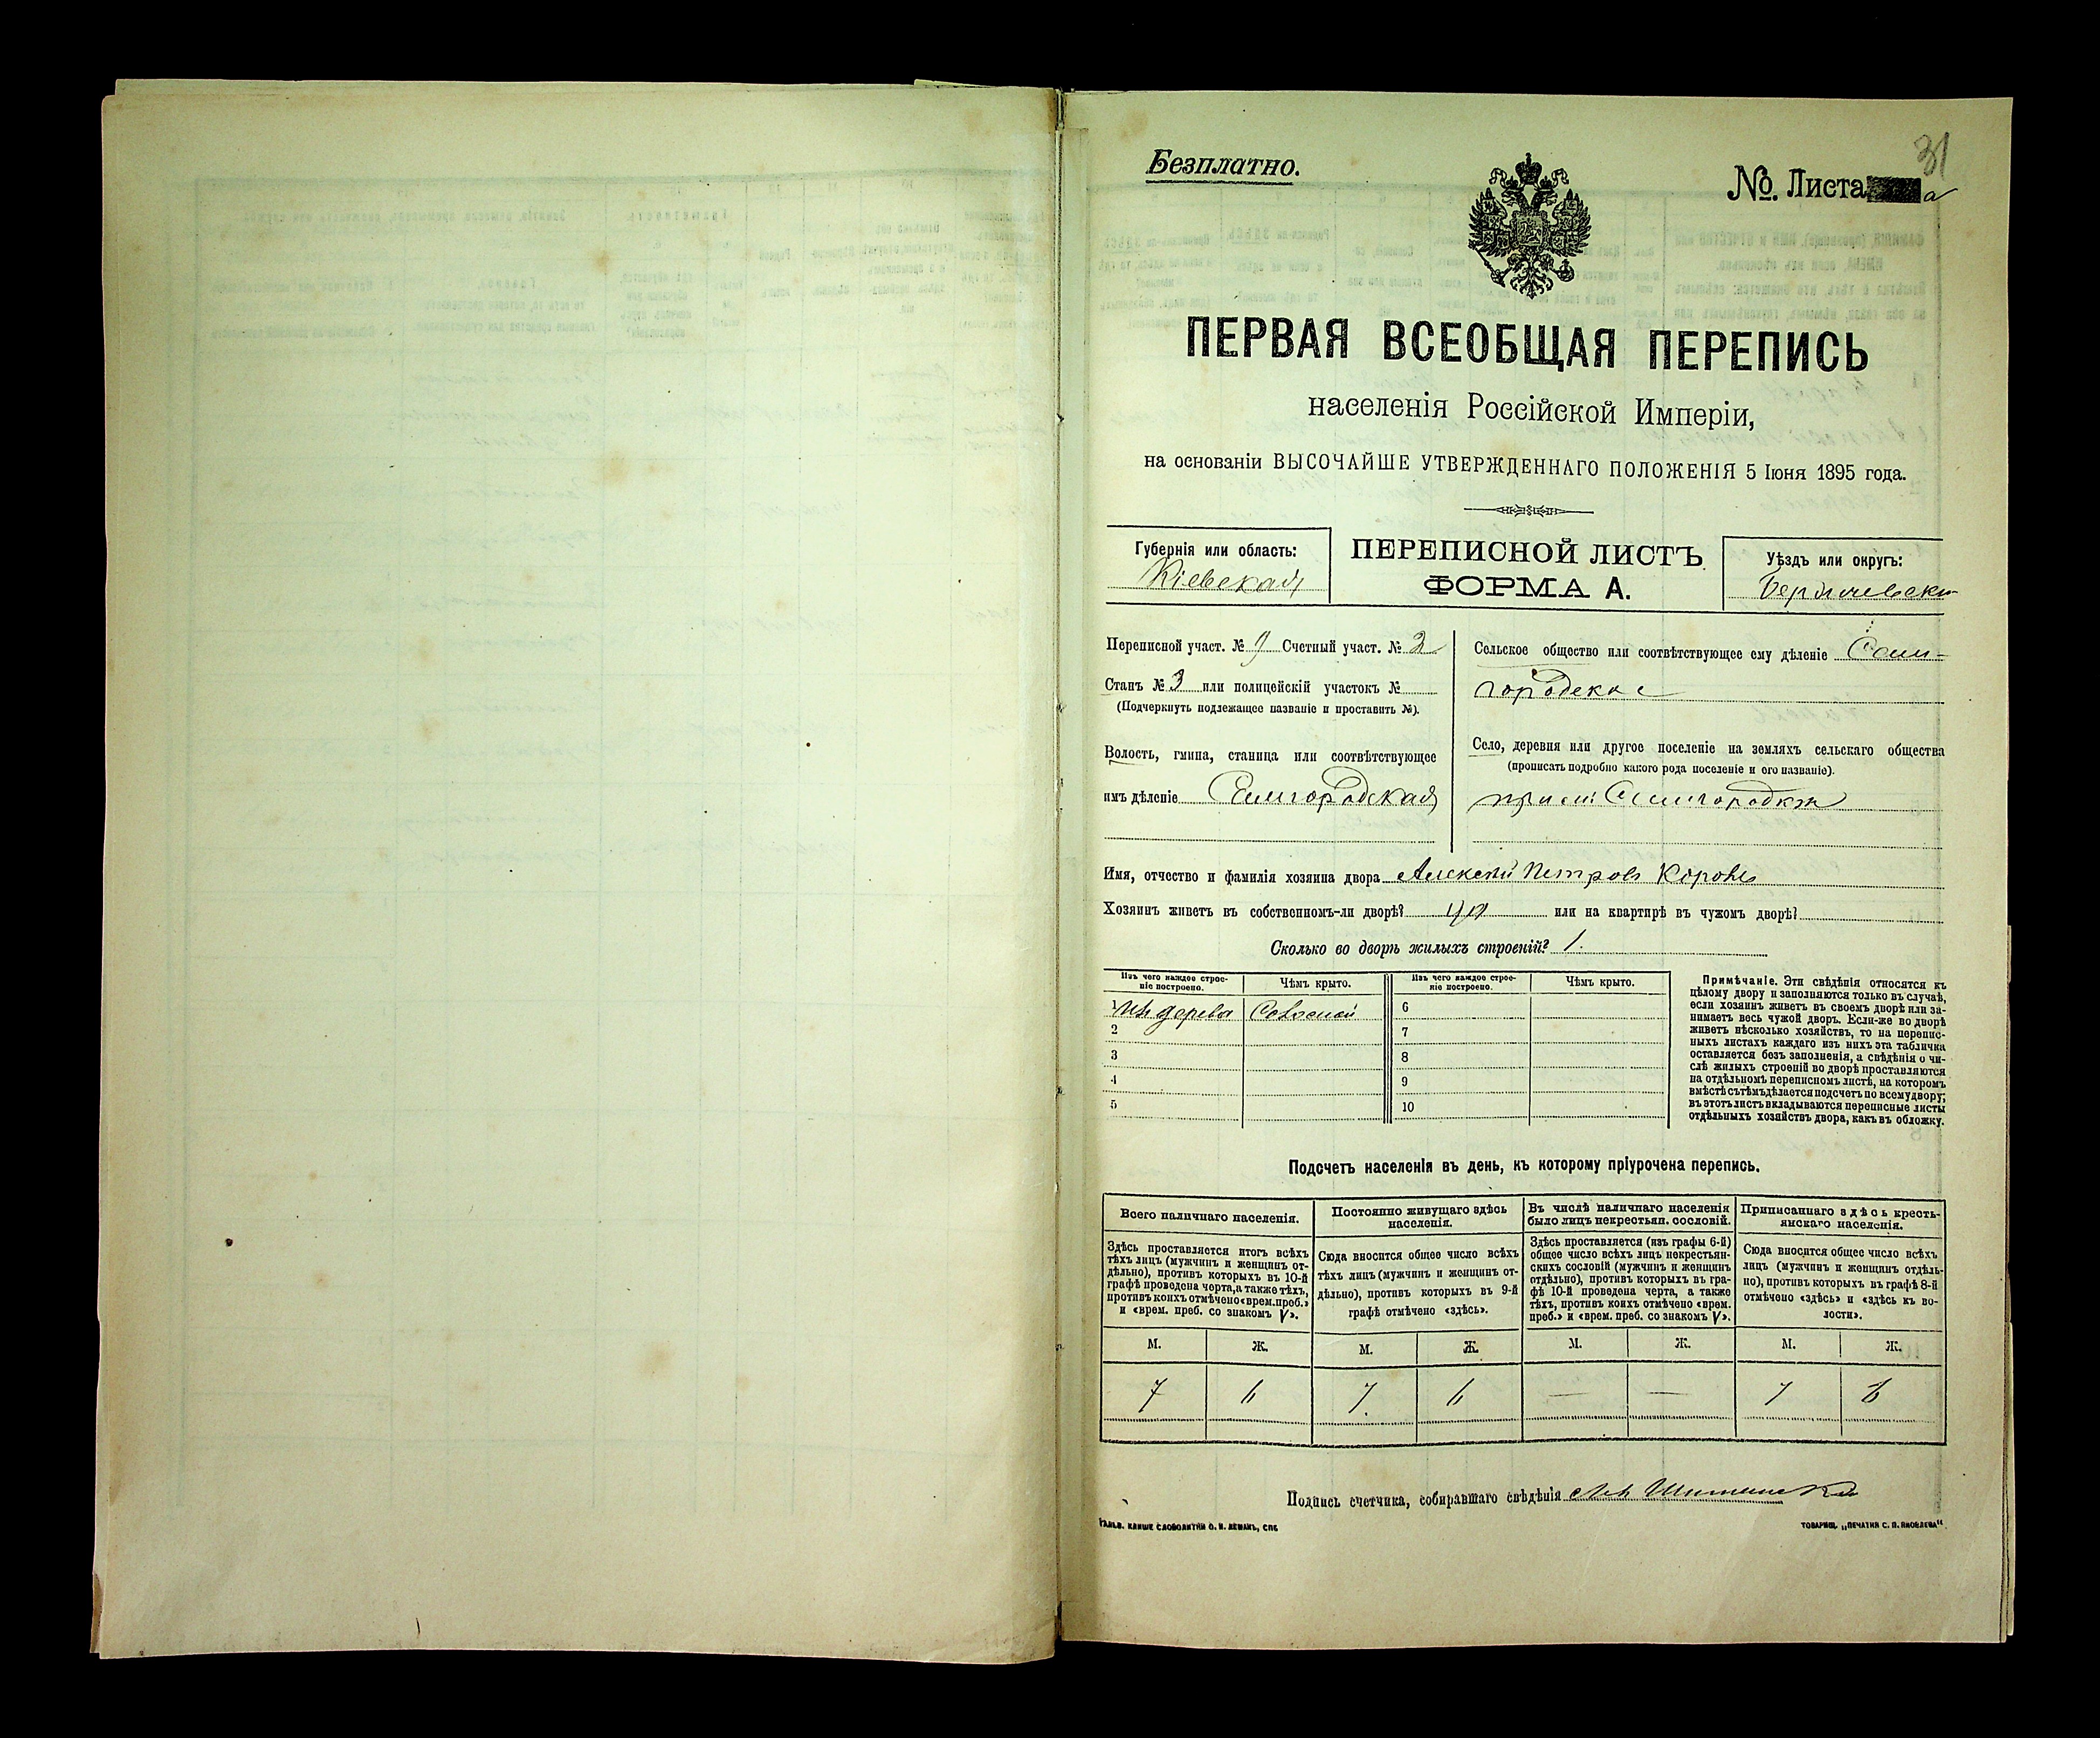 31
Безплатно.
№ Листа а
ПЕРВАЯ ВСЕОБЩАЯ ПЕРЕПИСЬ
населенія Россійской Имперіи,
на основаніи ВЫСОЧАЙШЕ УТВЕРЖДЕННАГО ПОЛОЖЕНІЯ 5 Іюня 1895 года.
Губернія или область:
Кіевская
ПЕРЕПИСНОЙ ЛИСТЪ
ФОРМА А.
Уѣздъ или округъ:
Бердичевскій
Переписной участ. № 9 Счетный участ. № 2
Станъ № 3 или полицейскій участокъ №
(Подчеркнуть подлежащее названіе и проставить №).
Волость, гмина, станица или соотвѣтствующее
имъ дѣленіе Самгородская
Сельское общество или соотвѣтствующее ему дѣленіе Сам-
городское
Село, деревня или другое поселеніе на земляхъ сельскаго общества
(прописать подробно какого рода поселеніе и его названіе).
при Самгородкѣ
Имя, отчество и фамилія хозяина двора Алексей Петровъ
Хозяинъ живетъ въ собственномъ-ли дворѣ? да или на квартирѣ въ чужомъ дворѣ?
Сколько во дворѣ жилыхъ строеній? 1.
Изъ чего каждое строе-
ніе построено.
Чѣмъ крыто.
Изъ чего каждое строе-
ніе построено.
Чѣмъ крыто.
1 Изъ дерева Соломой 6
2 7
3 8
4 9
5 10
Примѣчаніе. Эти свѣдѣнія относятся къ
цѣлому двору и заполняются только въ случаѣ,
если хозяинъ живетъ въ своемъ дворѣ или за-
нимаетъ весь чужой дворъ. Если-же во дворѣ
живетъ нѣсколько хозяйствъ, то на перепис-
ныхъ листахъ каждаго изъ нихъ эта табличка
оставляется безъ заполненія, а свѣдѣнія о чи-
слѣ жилыхъ строеній во дворѣ проставляются
на отдѣльномъ переписномъ листѣ, на которомъ
вмѣстѣ съ тѣмъ дѣлается подсчетъ по всему двору;
въ этотъ листъ вкладываются переписные листы
отдѣльныхъ хозяйствъ двора, какъ въ обложку.
Подсчетъ населенія въ день, къ которому пріурочена перепись.
Всего наличнаго населенія.
Здѣсь проставляется итогъ всѣхъ
тѣхъ лицъ (мужчинъ и женщинъ от-
дѣльно), противъ которыхъ въ 10-й
графѣ проведена черта, а также тѣхъ,
противъ коихъ отмѣчено «врем. преб.»
и «врем. преб. со знакомъ V».
Постоянно живущаго здѣсь
населенія.
Сюда вносится общее число всѣхъ
тѣхъ лицъ (мужчинъ и женщинъ от-
дѣльно), противъ которыхъ въ 9-й
графѣ отмѣчено «здѣсь».
Въ числѣ наличнаго населенія
было лицъ некрестьян. сословій.
Здѣсь проставляется (изъ графы 6-й)
общее число всѣхъ лицъ некрестьян-
скихъ сословій (мужчинъ и женщинъ
отдѣльно), противъ которыхъ въ гра-
фѣ 10-й проведена черта, а также
тѣхъ, противъ коихъ отмѣчено «врем.
преб.» и «врем. преб. со знакомъ V».
Приписаннаго здѣсь кресть-
янскаго населенія.
Сюда вносится общее число всѣхъ
лицъ (мужчинъ и женщинъ отдѣль-
но), противъ которыхъ въ графѣ 8-й
отмѣчено «здѣсь» и «здѣсь къ во-
лости».
М. Ж. М. Ж. М. Ж. М. Ж.
7 6 7 6 — — 7 6
Подпись счетчика, собиравшаго свѣдѣнія
ГАЛЬВ. КЛИШЕ СЛОВОЛИТНИ О. И. ЛЕМАНЪ, СПБ
ТОВАРИЩ. „ПЕЧАТНЯ С. П. ЯКОВЛЕВА“